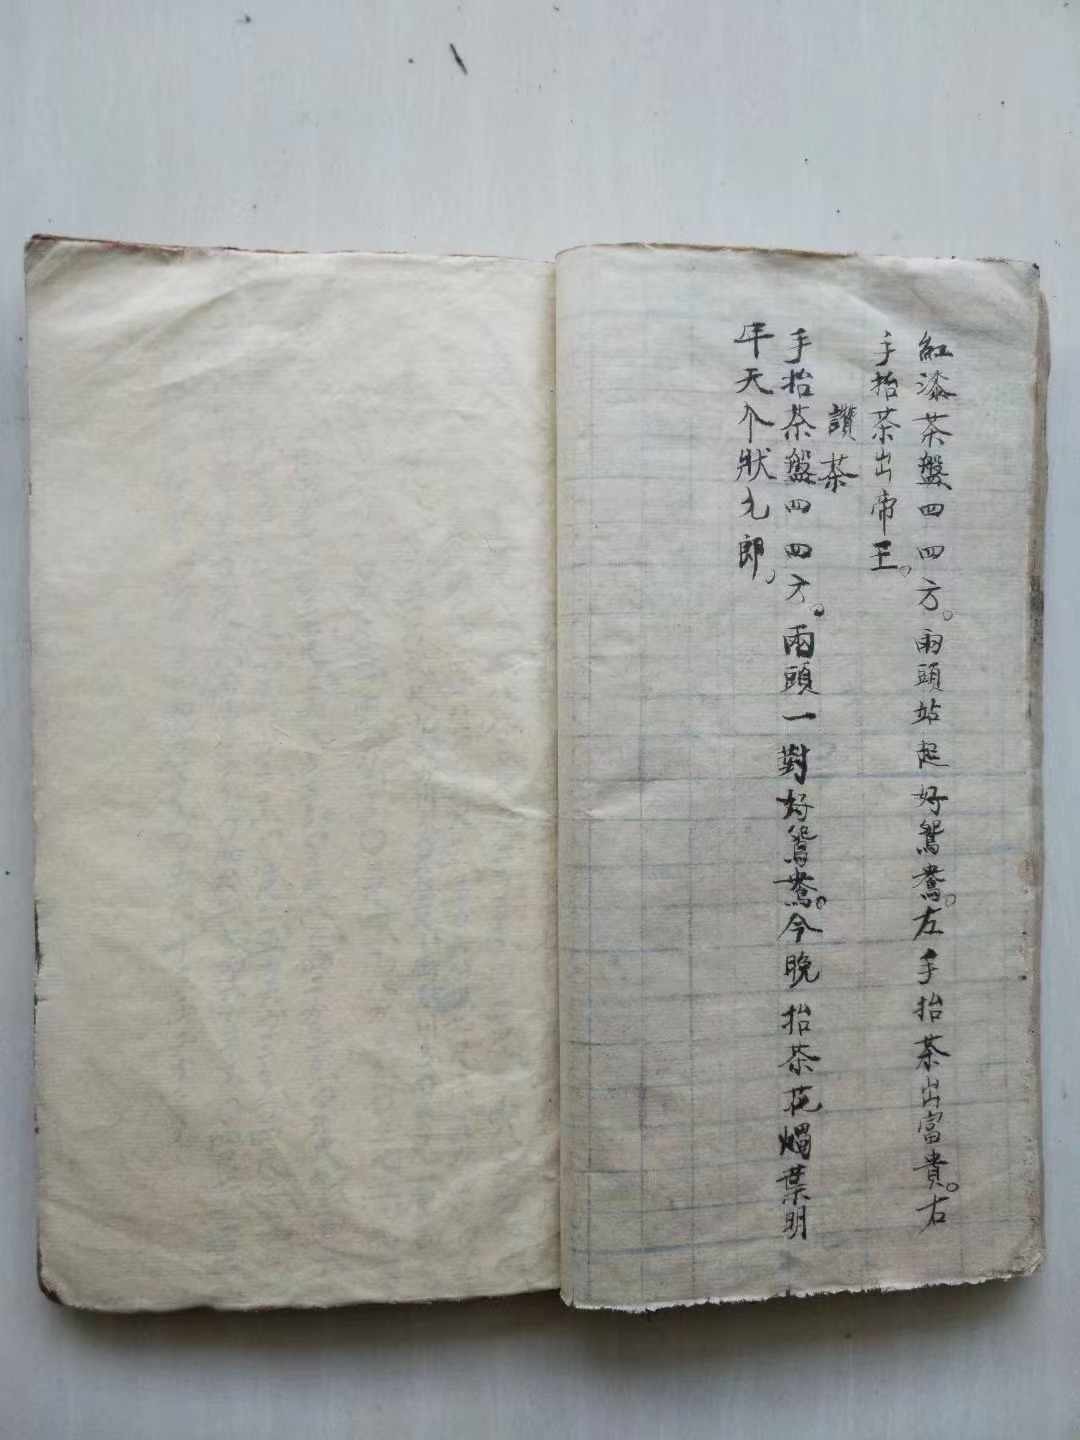 紅漆茶盤四四方。兩頭站起好鴛鴦。左手抬茶出富貴。右
手抬茶出帝王。
讚茶
手抬茶盤四四方。兩頭一對好鴛鴦。今晚抬茶花燭葉明
年天个狀元郎。